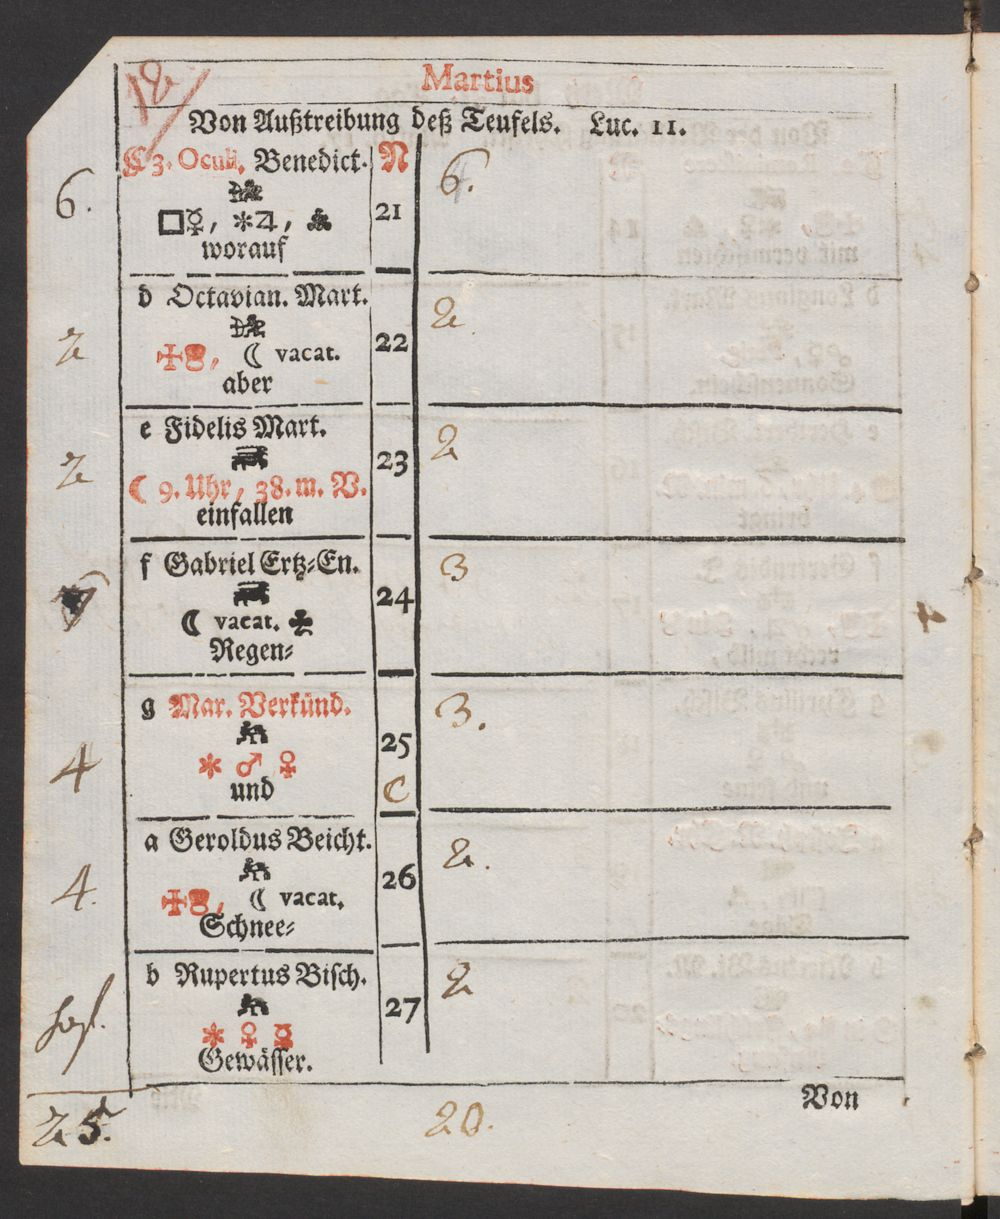 12
Martius
Von Außtreibung deß Teufels. Luc. 11.
C 3. Oculi, Benedict. N
6. 6.
□☿, ✻♃, 21
worauf
d Octavian. Mart.
2 2
☾ vacat. 22
aber
e Fidelis Mart.
2 23 2
☾ 9. Uhr, 38. m. V.
einfallen
f Gabriel Ertz-En.
24 3
☾ vacat.
Regen-
g Mar. Verkünd.
25 3.
4 ✻ ♂ ♀
und C
a Geroldus Beicht.
4. 26 2.
☾ vacat.
Schnee-
b Rupertus Bisch.
27 2
✻ ♀
Gewässer.
Von
25. 20.